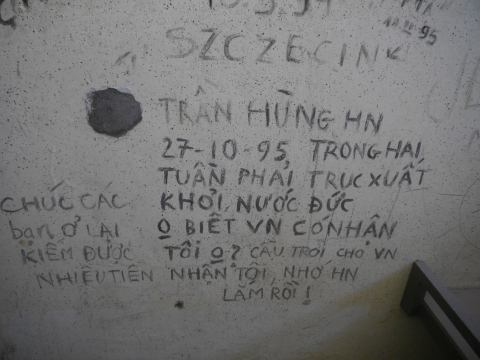 10.5.94
95
SZCZECIN
TRẦN HÙNG HN
27-10-95 TRONG HAI
TUẦN PHẢI TRỤC XUẤT
KHỎI NƯỚC ĐỨC
O BIẾT VN CÓ NHẬN
TÔI O? CẦU TRỜI CHO VN
NHẬN TÔI, NHỚ HN
LẮM RỒI!
CHÚC CÁC
bạn Ở LẠI
KIẾM ĐƯỢC
NHIỀU TIỀN